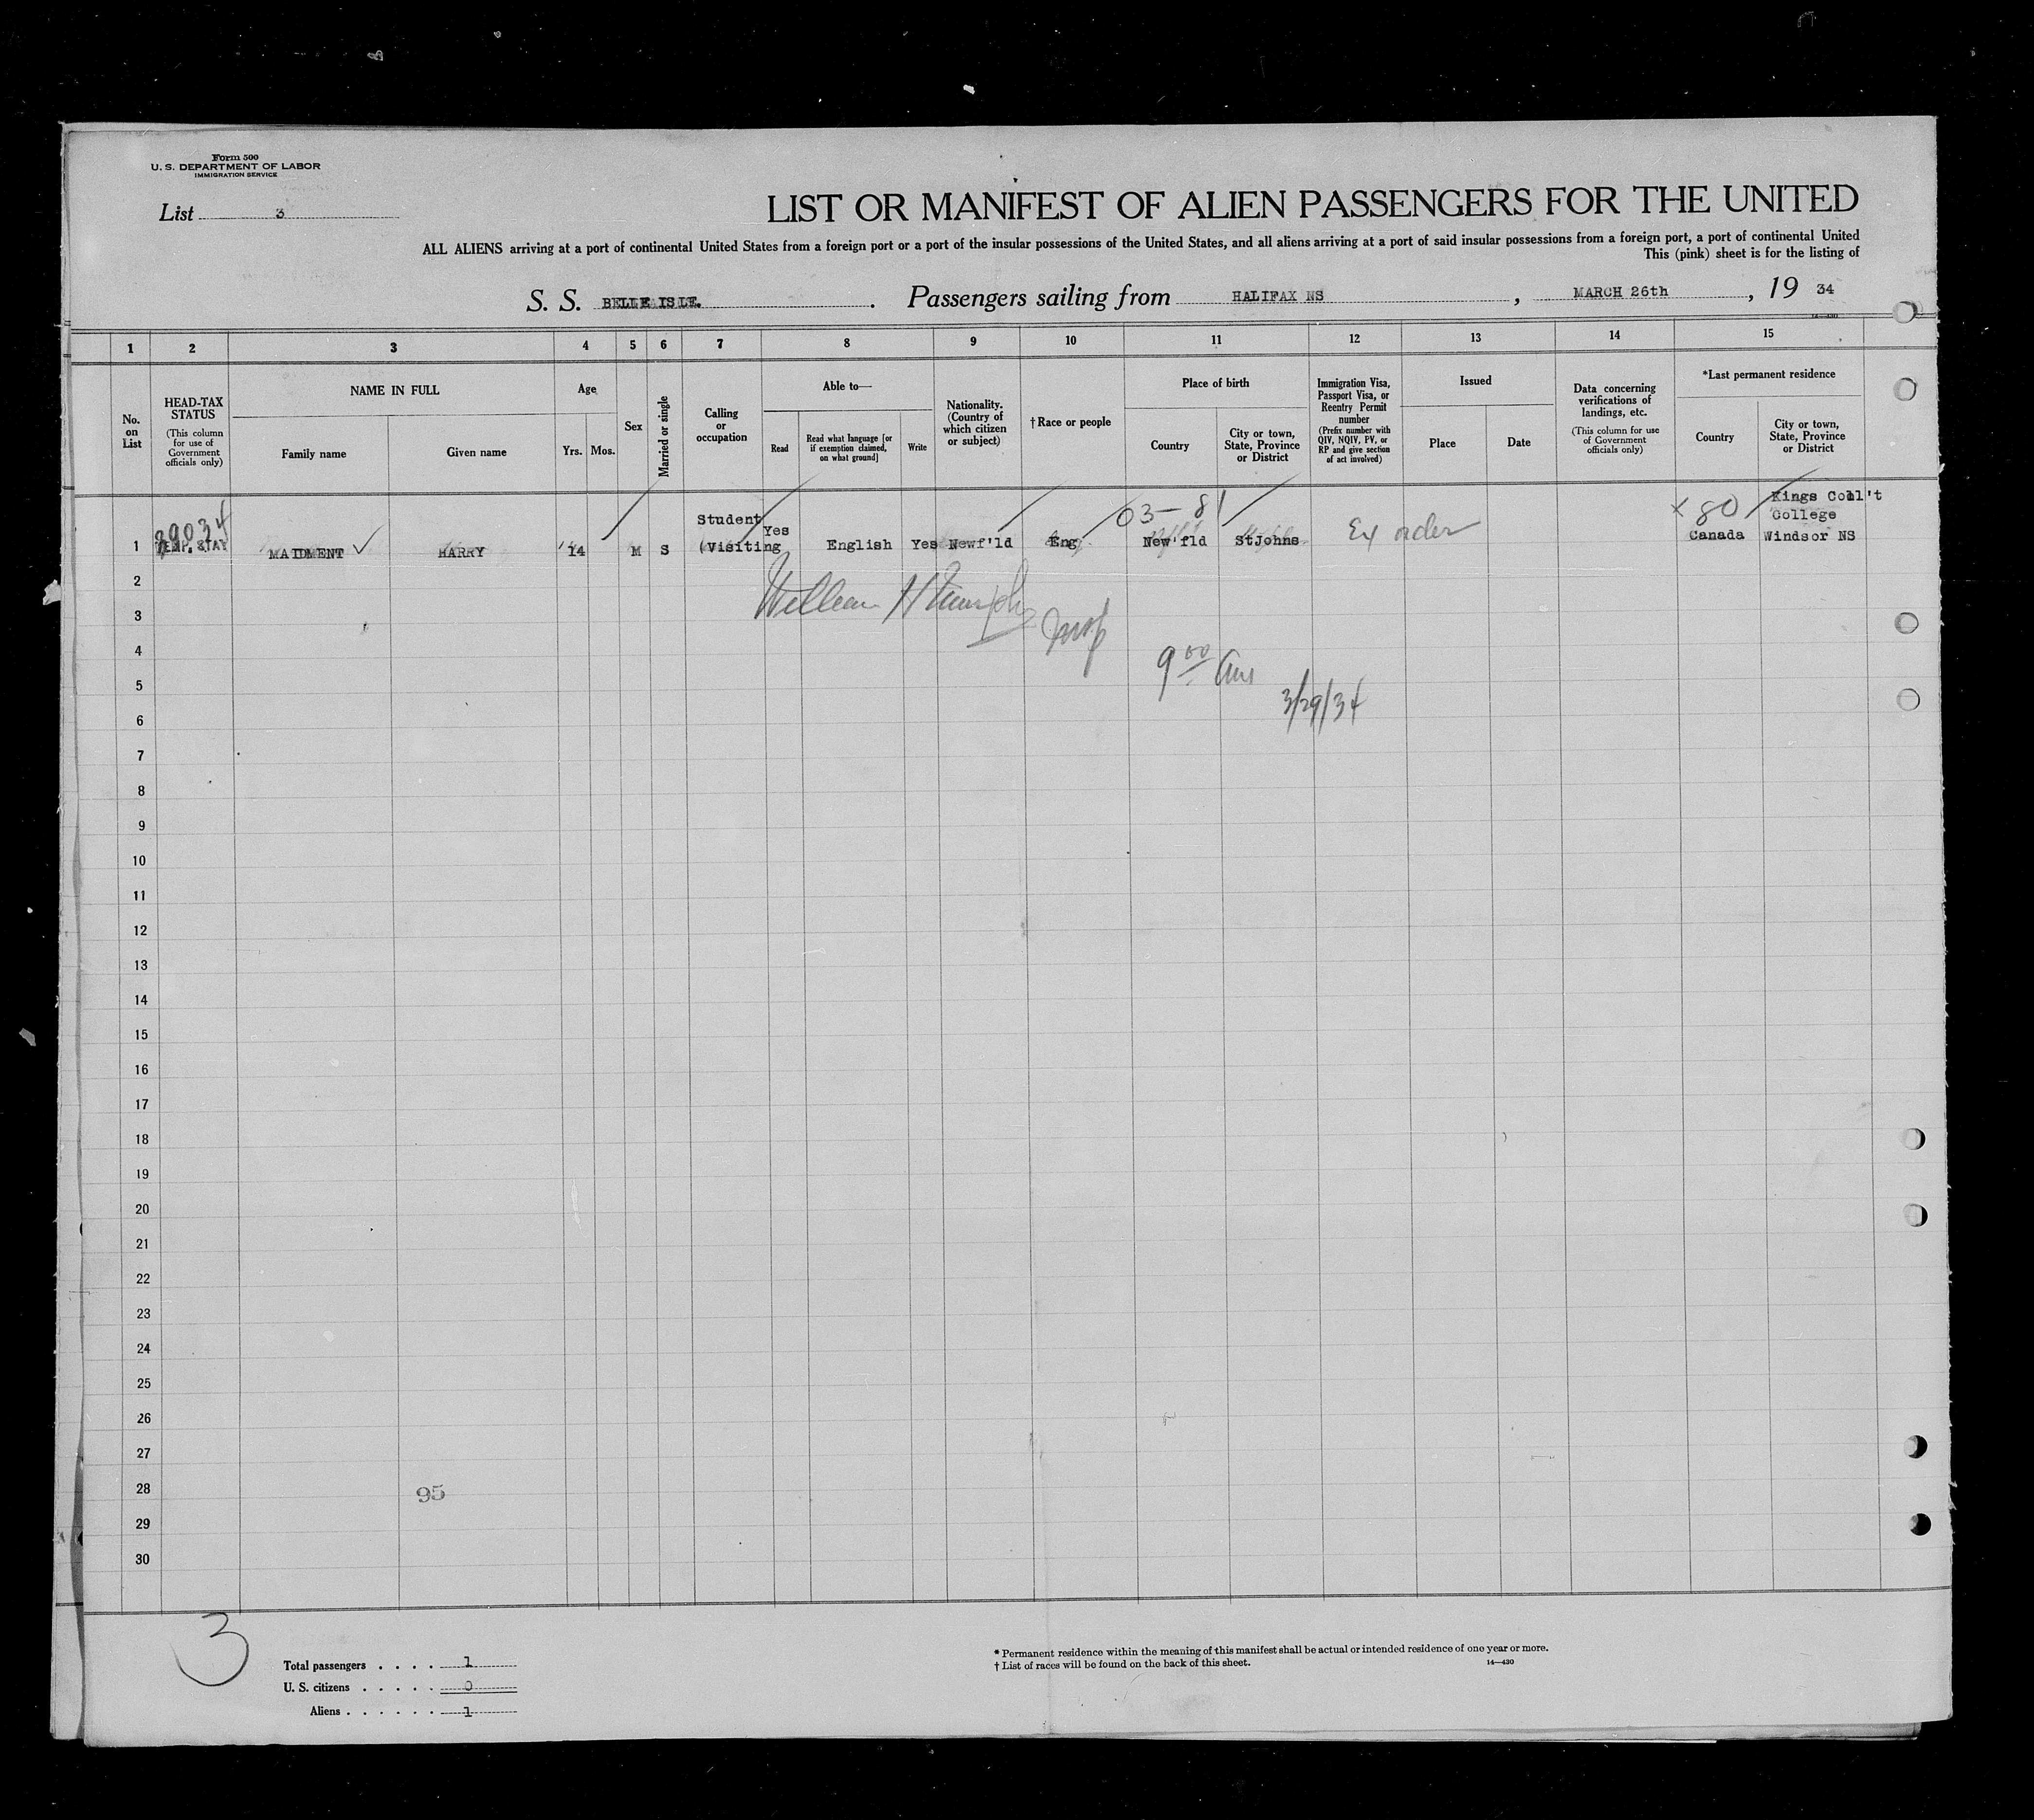 Form 500
U. S. DEPARTMENT OF LABOR
IMMIGRATION SERVICE
List 3
LIST OR MANIFEST OF ALIEN PASSENGERS FOR THE UNITED
ALL ALIENS arriving at a port of continental United States from a foreign port or a port of the insular possessions of the United States, and all aliens arriving at a port of said insular possessions from a foreign port, a port of continental United
This (pink) sheet is for the listing of
S. S. BELLE ISLE. . Passengers sailing from HALIFAX NS , MARCH 26th , 19 34
14—430
1 2 3 4 5 6 7 8 9 10 11 12 13 14 15
No. on List
HEAD-TAX STATUS
(This column for use of Government officials only)
NAME IN FULL
Family name
Given name
Age
Yrs. Mos.
Sex
Married or single
Calling or occupation
Able to—
Read
Read what language [or if exemption claimed, on what ground]
Write
Nationality. (Country of which citizen or subject)
† Race or people
Place of birth
Country
City or town, State, Province or District
Immigration Visa, Passport Visa, or Reentry Permit number
(Prefix number with QIV, NQIV, PV, or RP and give section of act involved)
Issued
Place
Date
Data concerning verifications of landings, etc.
(This column for use of Government officials only)
*Last permanent residence
Country
City or town, State, Province or District
03-81
x 80
Kings Coll't
Student
College
1 TEMP. STAY MAIDMENT ✓ HARRY 14 M S (Visiting Yes English Yes Newf'ld Eng New'fld StJohns Ex order Canada Windsor NS
2
William H
3
4
9 00 am
5
3/29/34
6
7
8
9
10
11
12
13
14
15
16
17
18
19
20
21
22
23
24
25
26
27
28
95
29
30
3
Total passengers . . . . 1
U. S. citizens . . . . . 0
Aliens . . . . . . 1
* Permanent residence within the meaning of this manifest shall be actual or intended residence of one year or more.
† List of races will be found on the back of this sheet.
14—430